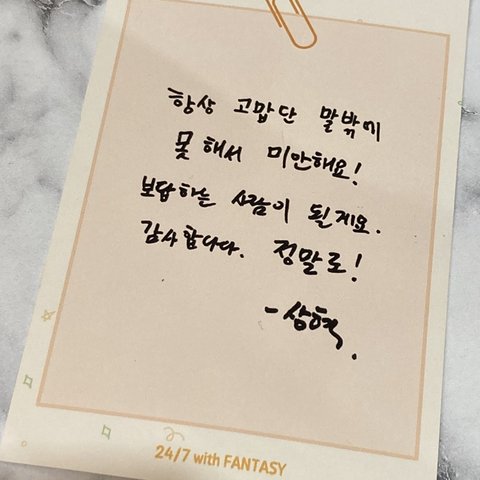 항상 고맙단 말밖에
못 해서 미안해요!
보답하는 사람이 될게요.
감사합니다. 정말로!
- 상혁.
24/7 with FANTASY